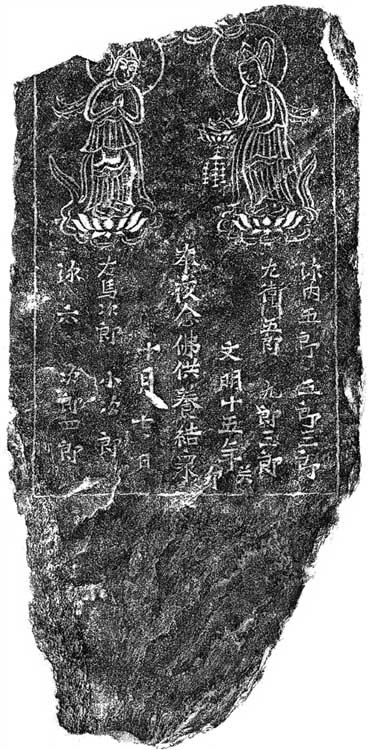 弥内五郎 五郎三郎
左衛門五郎 九郎三郎
文明十五年 癸卯
夜念佛供養結衆
十月 日
右馬次郎 小次郎
弥六 次郎四郎